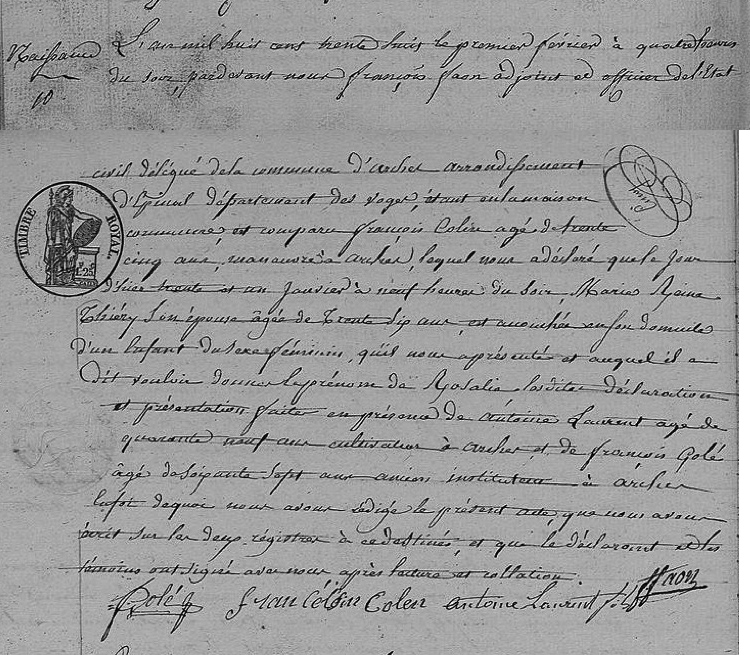 Naissance
10
L'an mil huit cent trente huit le premier février à quatre heures
du soir, pardevant nous françois faon adjoint et officier de l'Etat
civil délégué de la commune d'arches arrondissement
d'Epinal département des vosges, étant en la maison
commune est comparu françois Colin agé de trente
cinq ans, manœuvre à arches, lequel nous a déclaré que le jour
d'hier trente et un Janvier à neuf heures du soir, Marie Reine
Thiéry son épouse âgée de Trente six ans, est accouchée en son domicile
d'un Enfant du sexe féminin, qu'il nous a présenté et auquel il a
dit vouloir donner le prénom de Rosalie les dites déclaration
et présentation faites en présence de antoine Laurent agé de
quarante neuf ans cultivateur à arches et de françois Polé
âgé de soixante sept ans ancien instituteur à arches
En foi de quoi nous avons rédigé le présent acte, que nous avons
écrit sur les deux régistres à ce destinés, et que le déclarant et les
témoins ont signés avec nous après lecture et collation.
Polé françois Colin antoine Laurent faon
TIMBRE ROYAL